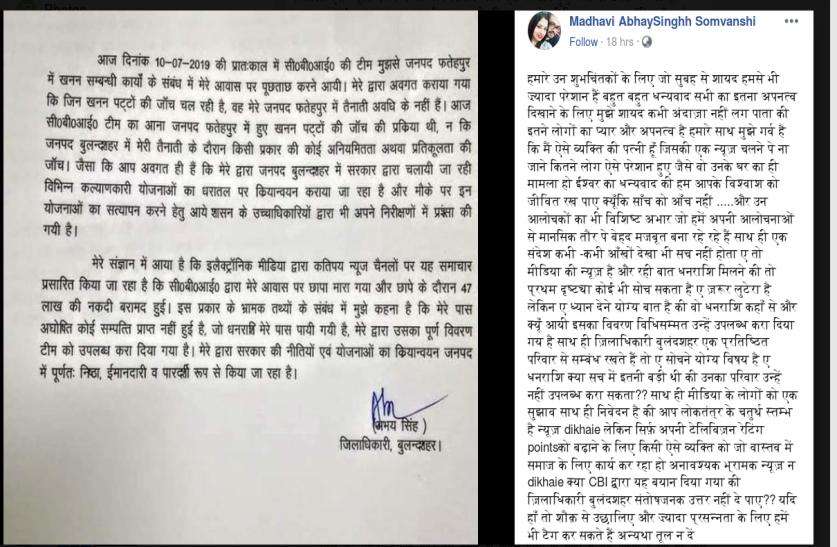 आज दिनांक 10-07-2019 की प्रातःकाल में सी०बी०आई० की टीम मुझसे जनपद फतेहपुर
में खनन सम्बन्धी कार्यो के संबंध में मेरे आवास पर पूछताछ करने आयी। मेरे द्वारा अवगत कराया गया
कि जिन खनन पट्टों की जाँच चल रही है, वह मेरे जनपद फतेहपुर में तैनाती अवधि के नहीं हैं। आज
सी०बी०आई० टीम का आना जनपद फतेहपुर में हुए खनन पट्टों की जाँच की प्रक्रिया थी, न कि
जनपद बुलन्दशहर में मेरी तैनाती के दौरान किसी प्रकार की कोई अनियमितता अथवा प्रतिकूलता की
जाँच। जैसा कि आप अवगत ही हैं कि मेरे द्वारा जनपद बुलन्दशहर में सरकार द्वारा चलायी जा रही
विभिन्न कल्याणकारी योजनाओं का धरातल पर कियान्वयन कराया जा रहा है और मौके पर इन
योजनाओं का सत्यापन करने हेतु आये शासन के उच्चाधिकारियों द्वारा भी अपने निरीक्षणों में प्रंशसा की
गयी है।
मेरे संज्ञान में आया है कि इलैक्ट्रॉनिक मीडिया द्वारा कतिपय न्यूज चैनलों पर यह समाचार
प्रसारित किया जा रहा है कि सी०बी०आई० द्वारा मेरे आवास पर छापा मारा गया और छापे के दौरान 47
लाख की नकदी बरामद हुई। इस प्रकार के भ्रामक तथ्यों के संबंध में मुझे कहना है कि मेरे पास
अघोषित कोई सम्पत्ति प्राप्त नहीं हुई है, जो धनराशि मेरे पास पायी गयी है, मेरे द्वारा उसका पूर्ण विवरण
टीम को उपलब्ध करा दिया गया है। मेरे द्वारा सरकार की नीतियों एवं योजनाओं का कियान्वयन जनपद
में पूर्णतः निष्ठा, ईमानदारी व पारदर्शी रूप से किया जा रहा है।
(अभय सिंह)
जिलाधिकारी, बुलन्दशहर।
Madhavi AbhaySinghh Somvanshi
Follow · 18 hrs ·
हमारे उन शुभचिंतकों के लिए जो सुबह से शायद हमसे भी
ज्यादा परेशान हैं बहुत बहुत धन्यवाद सभी का इतना अपनत्व
दिखाने के लिए मुझे शायद कभी अंदाज़ा नहीं लग पाता की
इतने लोगों का प्यार और अपनत्व है हमारे साथ मुझे गर्व है
कि मैं ऐसे व्यक्ति की पत्नी हूँ जिसकी एक न्यूज़ चलने पे ना
जाने कितने लोग ऐसे परेशान हुए जैसे वो उनके घर का ही
मामला हो ईश्वर का धन्यवाद की हम आपके विश्वास को
जीवित रख पाए क्यूँकि साँच को आँच नहीं .....और उन
आलोचकों का भी विशिष्ट अभार जो हमें अपनी आलोचनाओं
से मानसिक तौर पे बेहद मजबूत बना रहे रहे हैं साथ ही एक
संदेश कभी -कभी आँखों देखा भी सच नहीं होता ए तो
मीडिया की न्यूज़ है और रही बात धनराशि मिलने की तो
प्रथम दृष्टया कोई भी सोच सकता है ए ज़रूर लुटेरा है
लेकिन ए ध्यान देने योग्य बात है की वो धनराशि कहाँ से और
क्यूँ आयी इसका विवरण विधिसम्मत उन्हें उपलब्ध करा दिया
गय है साथ ही ज़िलाधिकारी बुलंदशहर एक प्रतिष्ठित
परिवार से सम्बंध रखते हैं तो ए सोचने योग्य विषय है ए
धनराशि क्या सच में इतनी बड़ी थी की उनका परिवार उन्हें
नहीं उपलब्ध करा सकता?? साथ ही मीडिया के लोगों को एक
सुझाव साथ ही निवेदन है की आप लोकतंत्र के चतुर्थ स्तम्भ
है न्यूज़ dikhaie लेकिन सिर्फ़ अपनी टेलिविज़न रेटिंग
pointsको बढ़ाने के लिए किसी ऐसे व्यक्ति को जो वास्तव में
समाज के लिए कार्य कर रहा हो अनावश्यक भ्रामक न्यूज़ न
dikhaie क्या CBI द्वारा यह बयान दिया गया की
ज़िलाधिकारी बुलंदशहर संतोषजनक उत्तर नहीं दे पाए?? यदि
हाँ तो शौक़ से उछालिए और ज्यादा प्रसन्नता के लिए हमें
भी टैग कर सकते हैं अन्यथा तूल न दें